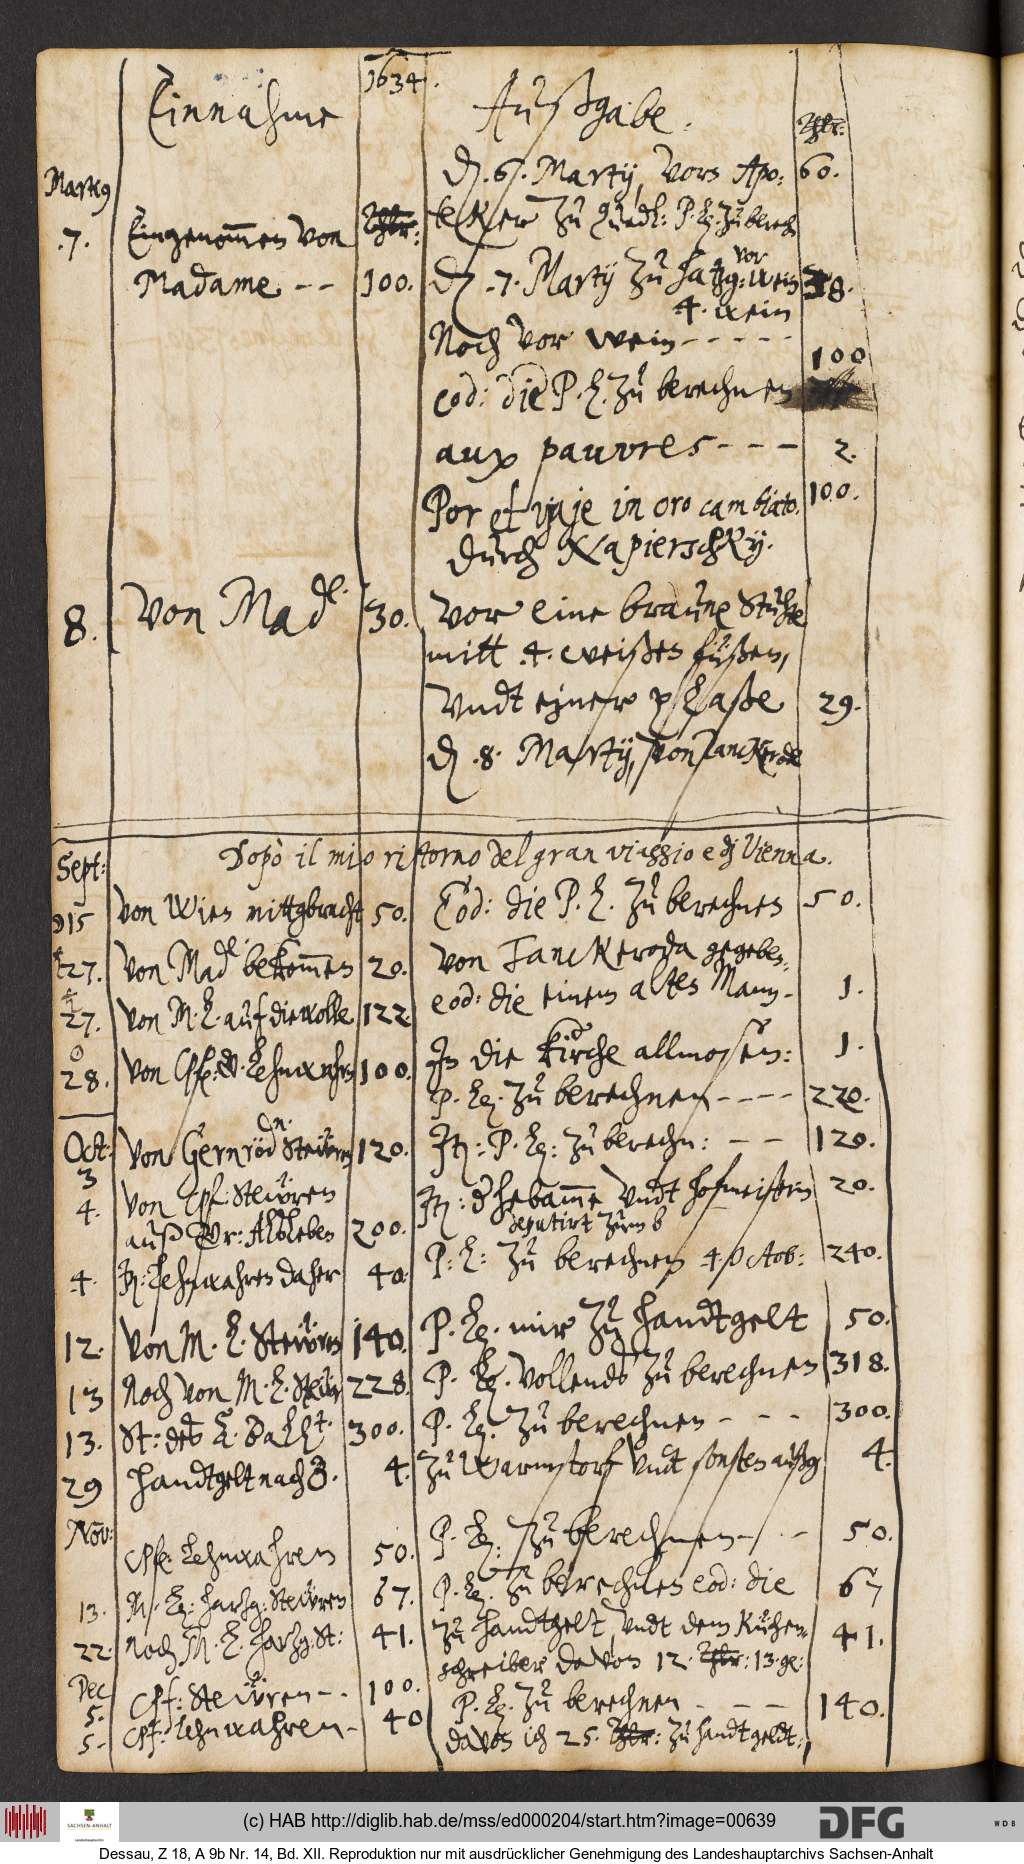 1634.
Einnahme
Außgabe.
Thlr:
Martij
d. 6. Martij, Vors Apo: 60.
teker Zu Quedl: P. L. Zu berech
.7. Eingenommen Von Thlr:
Madame -- 100.
d. 7. Martij Zu vor wein 38.
4. wein
Noch Vor wein - - - - -
100
eod: die P. L. Zu berechnen
aux pauvres - - - 2.
Por in oro cambiato. 100.
durch Kapierschky.
8. Von Mad. 30.
Vor eine braune Stuhte
mitt .4. weißen füßen,
Vndt einer pleaße 29.
d. 8. Martij, von Tanckrode
Dopò il mio ritorno del gran viaggio e di Vienna.
Sept:
15 Von Wien mittgbracht 50.
Eod: die P. L. Zu berechnen 50.
27. Von Mad. bekommen 20.
von Tanckeroda gegeben,
27. Von M. L. auf die wolle 122
eod: die einem altes Mann - 1.
28. Von Cpf: Lehnwahrn 100.
In die Kirche allmosen: 1.
P. L. Zu berechnen - - - - 220.
Oct:
3 Von Gernröd Steüren 120.
It: P. L: Zu berechn: - - 120.
4. Von Cpf: Steüren
auß Alsleben 200.
It: d hebamme Vndt hofmeisterin 20.
deputirt Zum
4. It: Lehnwahren daher 40.
P. L: Zu berechnen 4. Octob: 240.
12. Von M. L. Steüren 140.
P. L. mir Zu handtgelt 50.
13 Noch Von M. L. Steür 228.
P. L. Vollends Zu berechnen 318.
13. St: des L. Ball 300.
P. L. Zu berechnen - - - 300.
29 handtgelt nach 4.
Zu Warmstorf Vndt sonsten außg 4.
Nov:
Cpf: Lehnwahren 50.
P. L: Zu berechnen - - - 50.
13. M. L: harzg: Steüren 67.
P. L. Zu berechnen eod: die 67
22. noch M. L. harzg: St: 41.
Zu handtgelt, Vndt dem Küchen- 41.
schreiber davon 12. Thlr: 13. gl:
Dec
5. Cpf: Steüren - - 100.
P. L. Zu berechnen - - - 140.
5 - Cpf: Lehnwahren - 40
davon ich 25. Thlr: Zu handtgeldt:,
SACHSEN-ANHALT
(c) HAB http://diglib.hab.de/mss/ed000204/start.htm?image=00639
DFG
WDB
Dessau, Z 18, A 9b Nr. 14, Bd. XII. Reproduktion nur mit ausdrücklicher Genehmigung des Landeshauptarchivs Sachsen-Anhalt